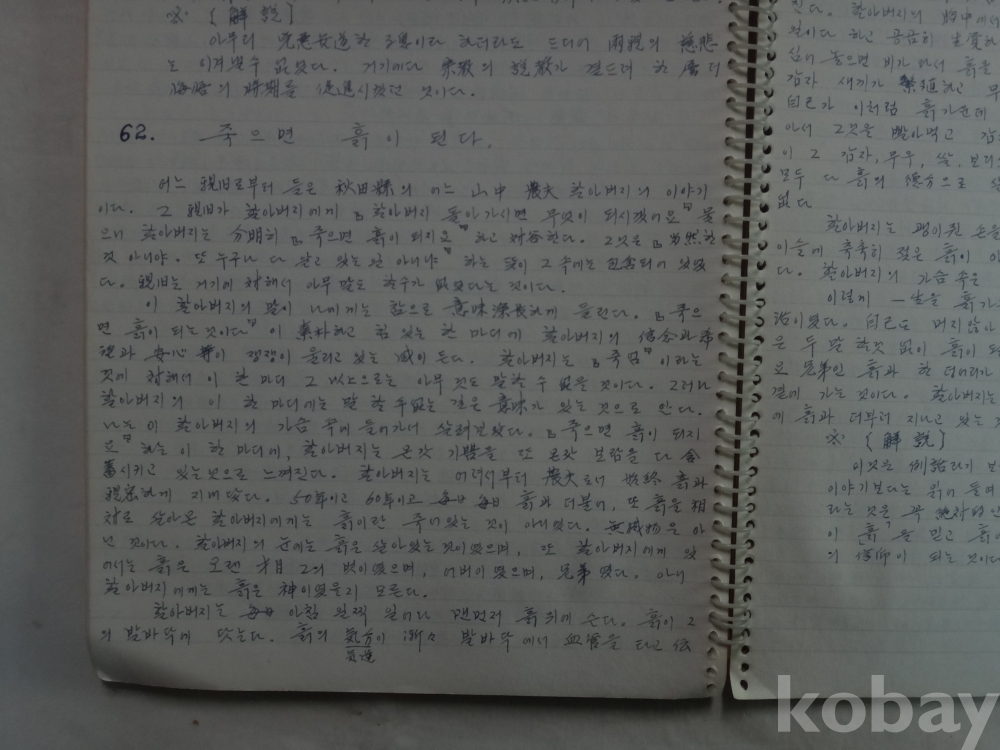 ※ 〔解說〕
아무리 兇惡無道한 子息이라 하더라도 드디어 兩親의 慈悲
는 이겨낼수 없었다. 거기에다 宗敎의 說敎가 곁드려 한層 더
悔悟의 時期를 促進시켰던 것이다.
62. 죽으면 흙이 된다.
어느 親旧로부터 들은 秋田縣의 어느 山中 農夫 할아버지의 이야기
이다. 그 親旧가 할아버지에게 『할아버지 돌아가시면 무엇이 되시겠어요』 물
으니 할아버지는 分明히 『죽으면 흙이 되지요』 하고 対答한다. 그것은 『当然한
것 아니야. 또 누구나 다 알고 있는 일 아니냐』 하는 뜻이 그 속에는 包含되어 있었
다. 親旧는 거기에 対해서 아무 말도 할수가 없었다는 것이다.
이 할아버지의 말이 나에게는 참으로 意味深長하게 들린다. 『죽으
면 흙이 되는것이다』 이 素朴하고 힘 있는 한 마디에 할아버지의 信念과 希
望과 安心 等이 쟁쟁이 울리고 있는 感이 든다. 할아버지는 『죽엄』 이라는
것에 対해서 이 한 마디 그 以上으로는 아무 것도 말할 수 없을 것이다. 그러나
할아버지의 이 한 마디에는 말 할 수 없는 깊은 意味가 있는 것으로 안다.
나는 이 할아버지의 가슴 속에 들어가서 살펴보았다. 『죽으면 흙이 되지
요』 하는 이 한 마디에, 할아버지는 온갖 기쁨을 또 온갖 보람을 다 含
蓄시키고 있는것으로 느껴진다. 할아버지는 어려서부터 農夫로서 始終 흙과
親密하게 지내 왔다. 50年이고 60年이고 每日 每日 흙과 더불어, 또 흙을 相
対로 살아온 할아버지에게는 흙이란 죽어있는 것이 아니였다. 無機物은 아
닌 것이다. 할아버지의 눈에는 흙은 살아있는 것이였으며, 또 할아버지에게 있
어서는 흙은 오랜 才目 그의 벗이였으며, 어버이였으며, 兄弟였다. 아니
할아버지에게는 흙은 神이였을지 모른다.
할아버지는 每日 아침 일찍 일어나 맨먼저 흙 위에 슨다. 흙이 그
의 발바닥에 닷는다. 흙의 気分이 漸々 발바닥에서 血管을 타고 伝
진다. 할아버지의
이다 하고
심어 놓으면 비가 와서 흙을
감자 새끼가 繁殖하고 무
自己가 이처럼 흙가운데
아서 그것을 빨아먹고 감
이 그 감자, 무우, 쌀, 보리
모두 다 흙의 德分으로
없다
할아버지는 괭이 쥔 손을
이슬에 촉촉히 젖은 흙이
다. 할아버지의 가슴 속은
이렇게 一生을 흙가
治이였다. 自己도 머지않아
은 두 말 할것 없이 흙이 되
요 兄弟인 흙과 한 덩어리가
곁에 가는 것이다. 할아버지는
에 흙과 더부터 지나고 있는
※ 〔解說〕
이것은 例話라기 보
이야기보다는 읽어
라는 것은 꼭 絶対的인
이 흙을 믿고 흙
의 信仰이 되는 것이다
kobay